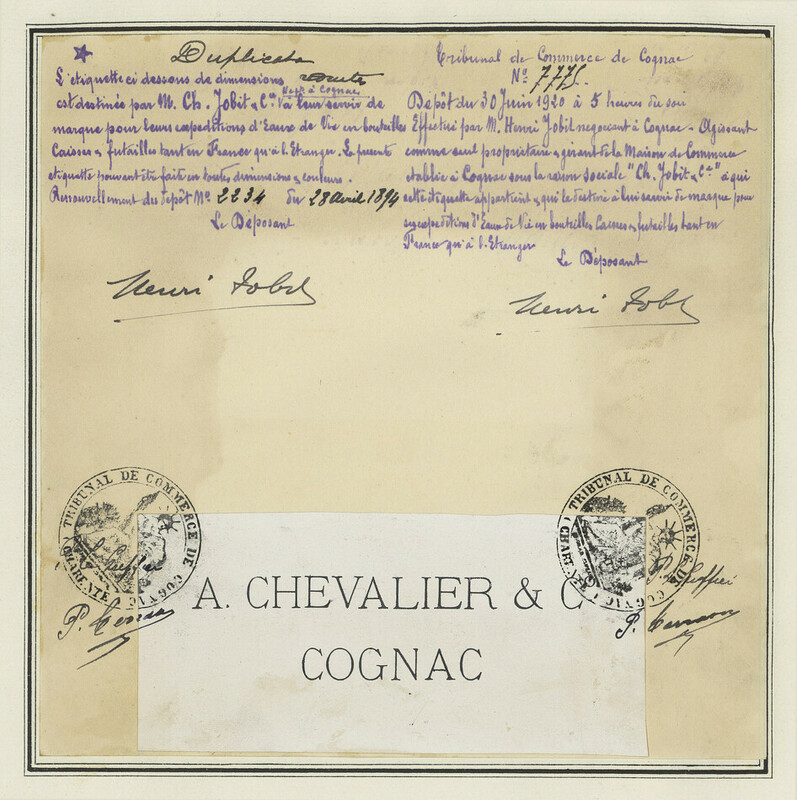 Duplicata
L'étiquette ci dessous de dimensions
est destinée par M. Ch. Jobit & Cie Negts à Cognac à leur servir de
marque pour leurs expéditions d'Eaux de Vie en bouteilles
Caisses & futailles tant en France qu'à l'Etranger. La présente
étiquette pouvant être faite en toutes dimensions & couleurs.
Renouvellement du dépôt No 2234 du 28 avril 1894
Le Déposant
Henri Jobit
Tribunal de Commerce de Cognac
No 7775.
Dépôt du 30 Juin 1920 à 5 heures du soir
Effectué par M. Henri Jobit négociant à Cognac - Agissant
comme seul propriétaire & gérant de la Maison de Commerce
établie à Cognac sous la raison sociale "Ch. Jobit & Cie" à qui
cette étiquette appartient & qui la destine à lui servir de marque pour
ses expéditions d'Eaux de Vie en bouteilles Caisses & futailles tant en
France qu'à l'Etranger
Le Déposant
Henri Jobit
TRIBUNAL DE COMMERCE DE COGNAC
CHARENTE
P.
TRIBUNAL DE COMMERCE DE COGNAC
CHARENTE
P.
A. CHEVALIER & C
COGNAC